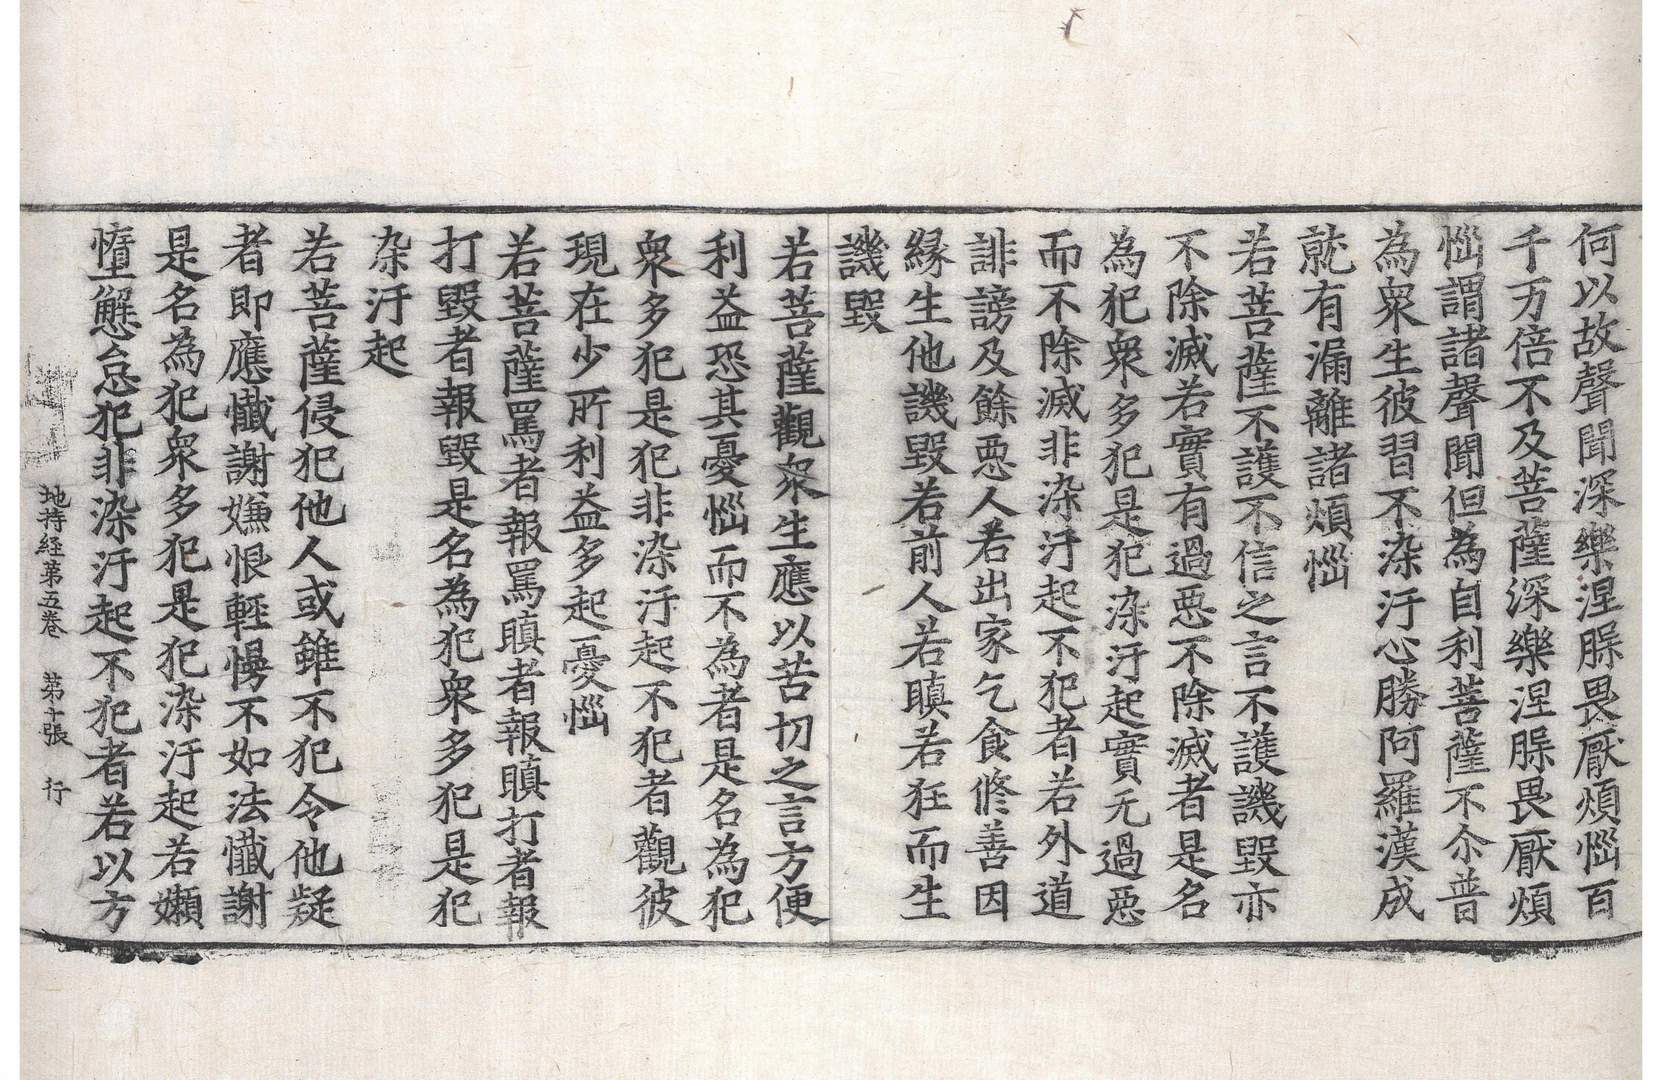 何以故聲聞深樂涅槃畏厭煩惱百
千万倍不及菩薩深樂涅槃畏厭煩
惱謂諸聲聞但為自利菩薩不尒普
為衆生彼習不染汙心勝阿羅漢成
就有漏離諸煩惱
若菩薩不護不信之言不護譏毀亦
不除滅若實有過惡不除滅者是名
為犯衆多犯是犯染汙起實无過惡
而不除滅非染汙起不犯者若外道
誹謗及餘惡人若出家乞食脩善因
緣生他譏毀若前人若瞋若狂而生
譏毀
若菩薩觀衆生應以苦切之言方便
利益恐其憂惱而不為者是名為犯
衆多犯是犯非染汙起不犯者觀彼
現在少所利益多起憂惱
若菩薩罵者報罵瞋者報瞋打者報
打毀者報毀是名為犯衆多犯是犯
染汙起
若菩薩侵犯他人或雖不犯令他疑
者即應懺謝嫌恨輕慢不如法懺謝
是名為犯衆多犯是犯染汙起若嬾
惰懈怠犯非染汙起不犯者若以方
地持経第五卷 第十張 行